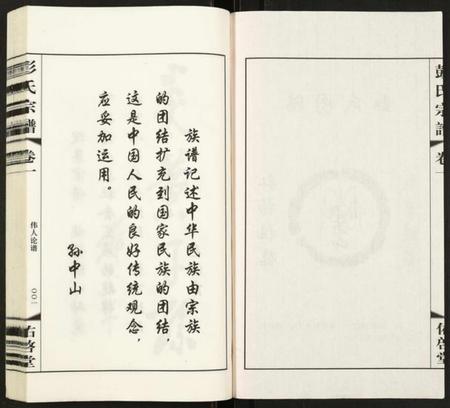 族谱记述中华民族由宗族
的团结扩充到国家民族的团结，
这是中国人民的良好传统观念，
应妥加运用。
孙中山
彭氏宗譜
卷一
伟人论谱
〇〇一
佑啓堂
彭氏宗譜
卷一
佑啓堂